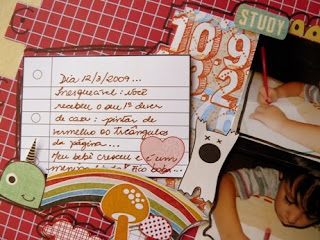 STUDY
10.9
8.2
Dia 12/3/2009...
Inesquecível: você
recebeu o seu 1º dever
de casa: pintar de
vermelho os triângulos
da página...
Meu bebê cresceu e é um